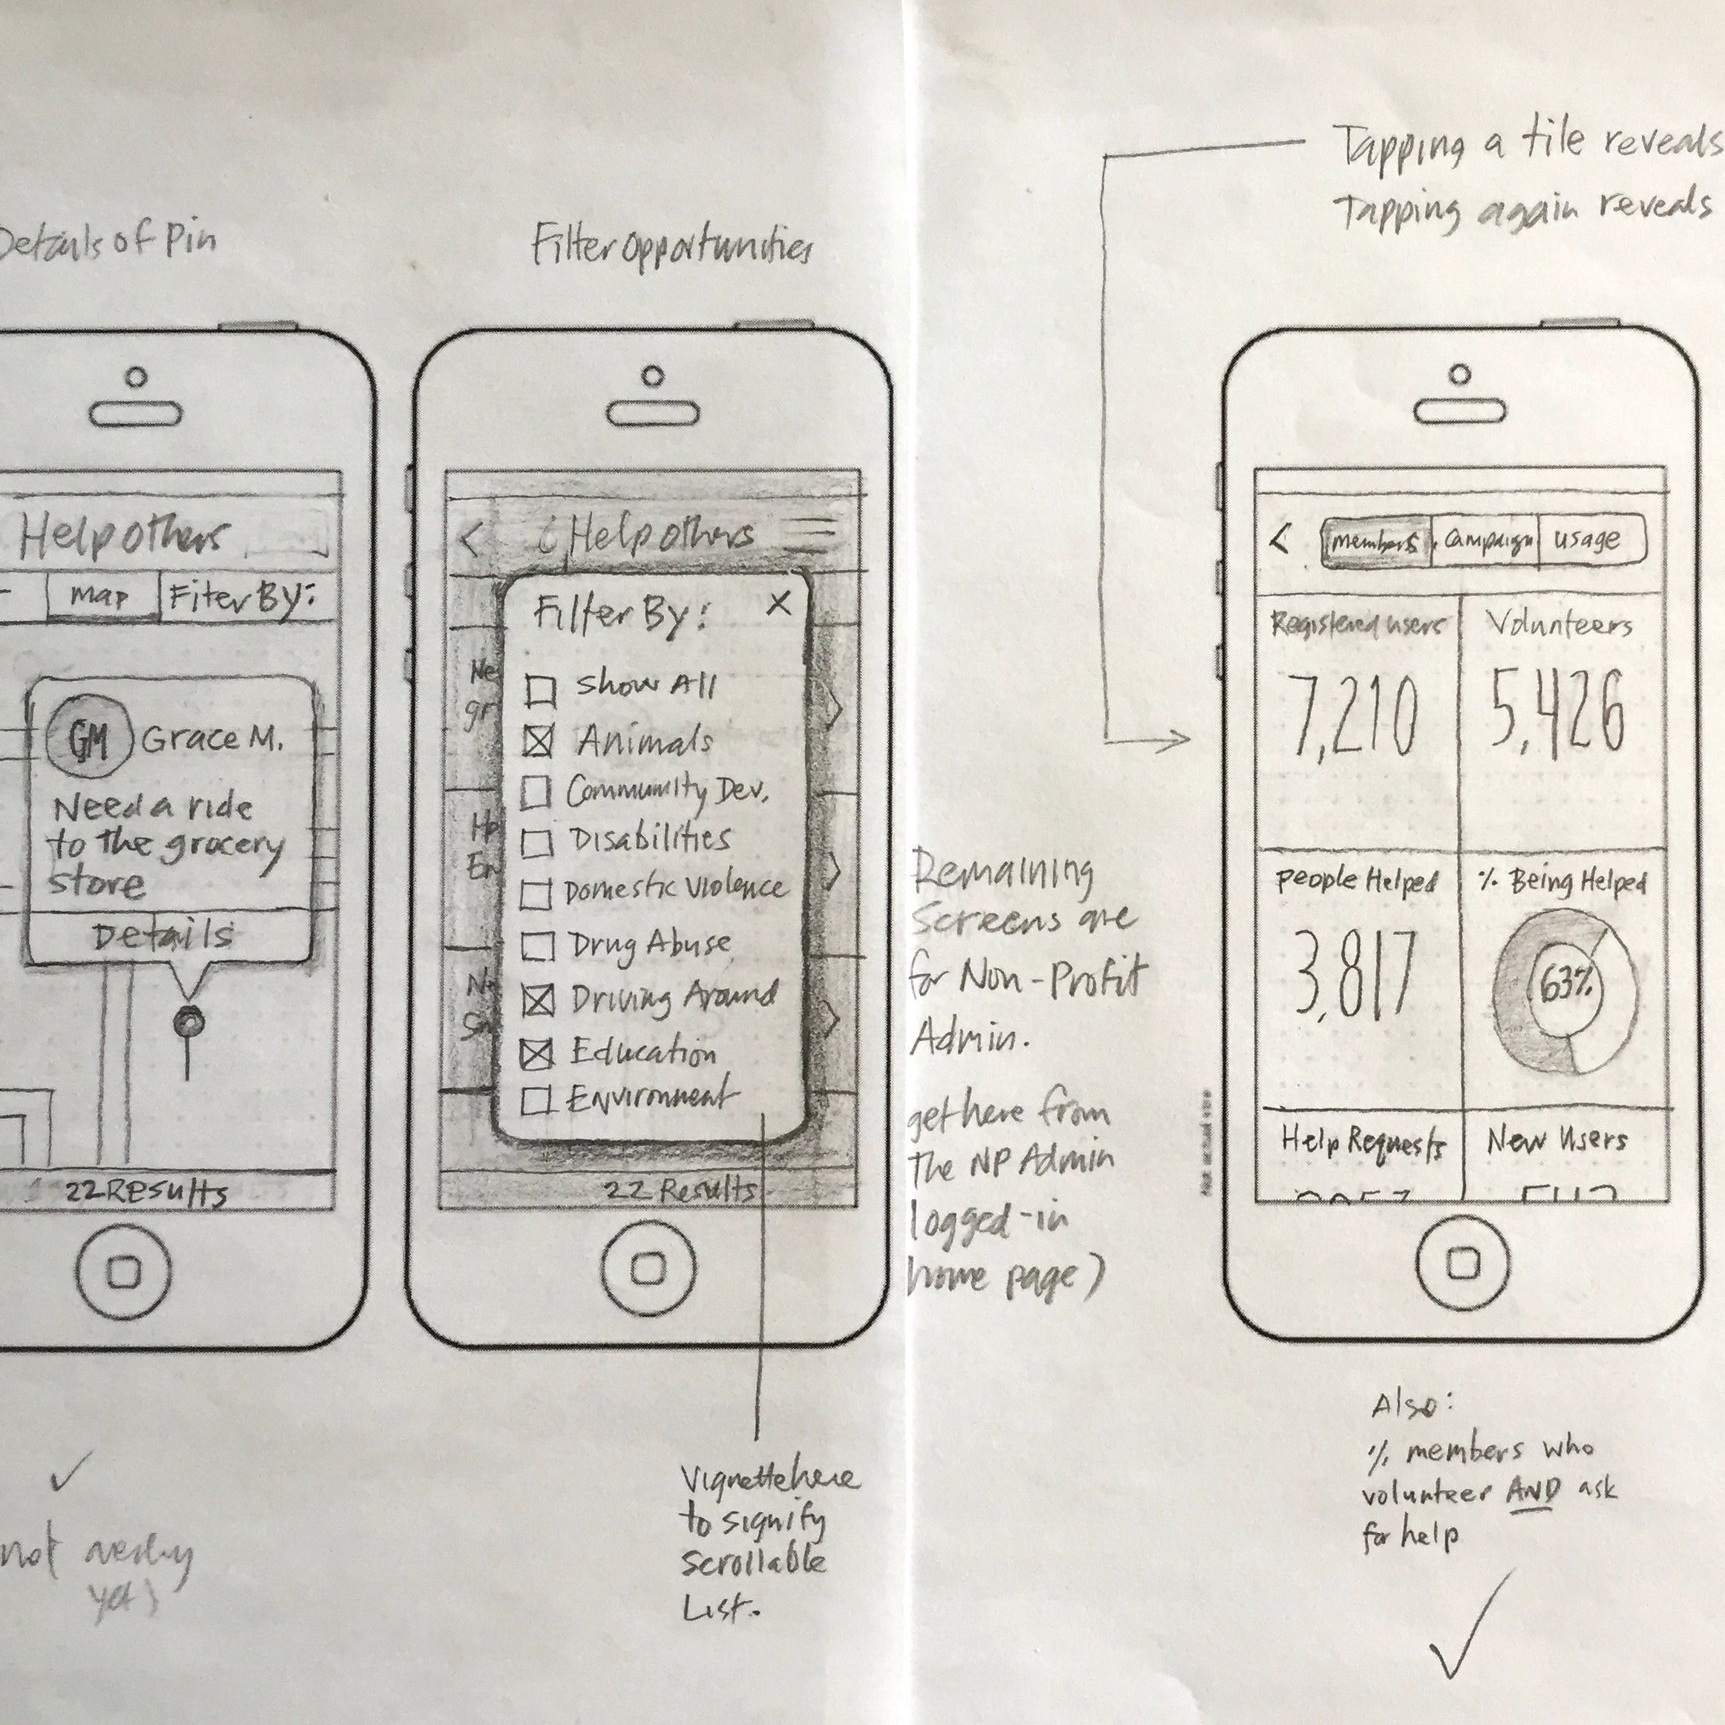 Details of Pin
Help others
Map
FilterBy:
GM
Grace M.
Need a ride
to the grocery
store
Details
22 Results
not
yet)
Filter opportunities
<
Help others
Filter By:
X
Show All
Animals
Community Dev.
Disabilities
Domestic Violence
Drug Abuse
Driving Around
Education
Environment
Ne
gr
En
22 Results
Vignette here
to signify
scrollable
List.
Remaining
Screens are
for Non-Profit
Admin.
get here from
The NP Admin
logged-in
home page)
Tapping a tile reveals
Tapping again reveals
<
members
Campaign
usage
Registered users
7,210
Volunteers
5,426
People Helped
3,817
% Being Helped
63%
Help Requests
New Users
Not actual size
Also:
% members who
volunteer AND ask
for help